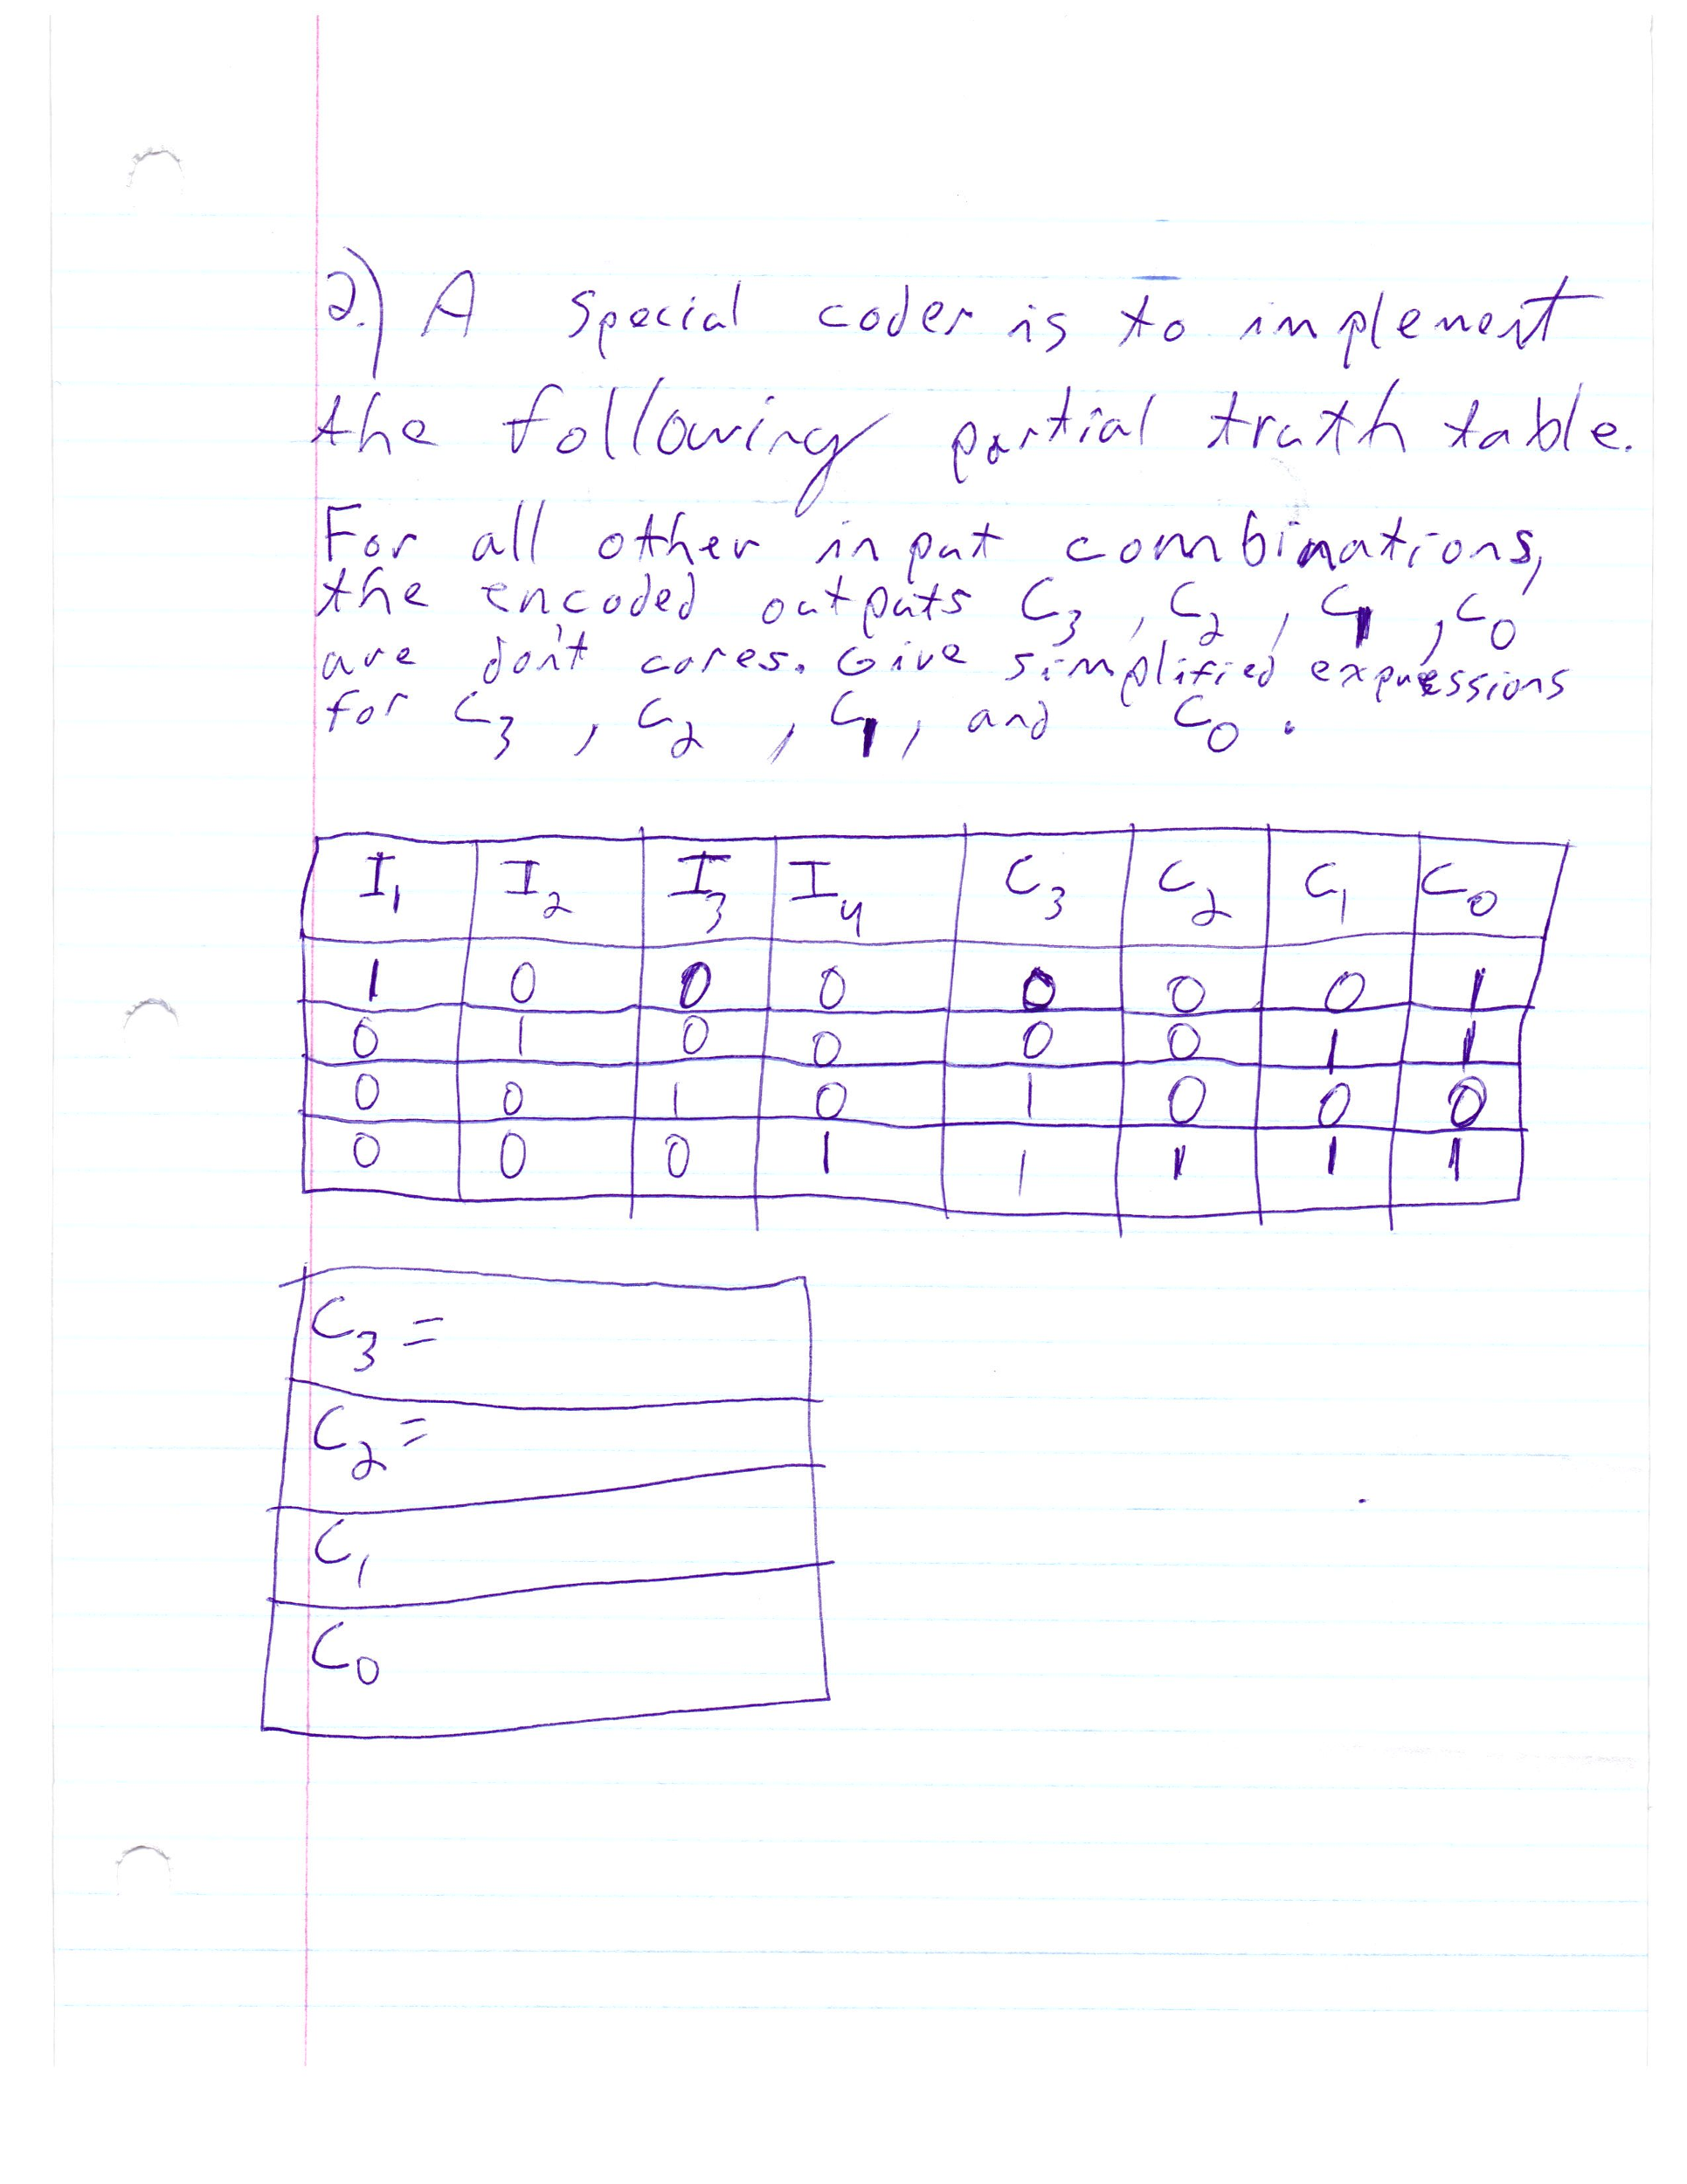 2.) A special coder is to implement
the following partial truth table.
For all other input combinations,
the encoded outputs C3, C2, C1, C0
are don't cares. Give simplified expressions
for C3, C2, C1, and C0.
I1 I2 I3 I4 C3 C2 C1 C0
1 0 0 0 0 0 0 1
0 1 0 0 0 0 1 1
0 0 1 0 1 0 0 0
0 0 0 1 1 1 1 1
C3 =
C2 =
C1
C0